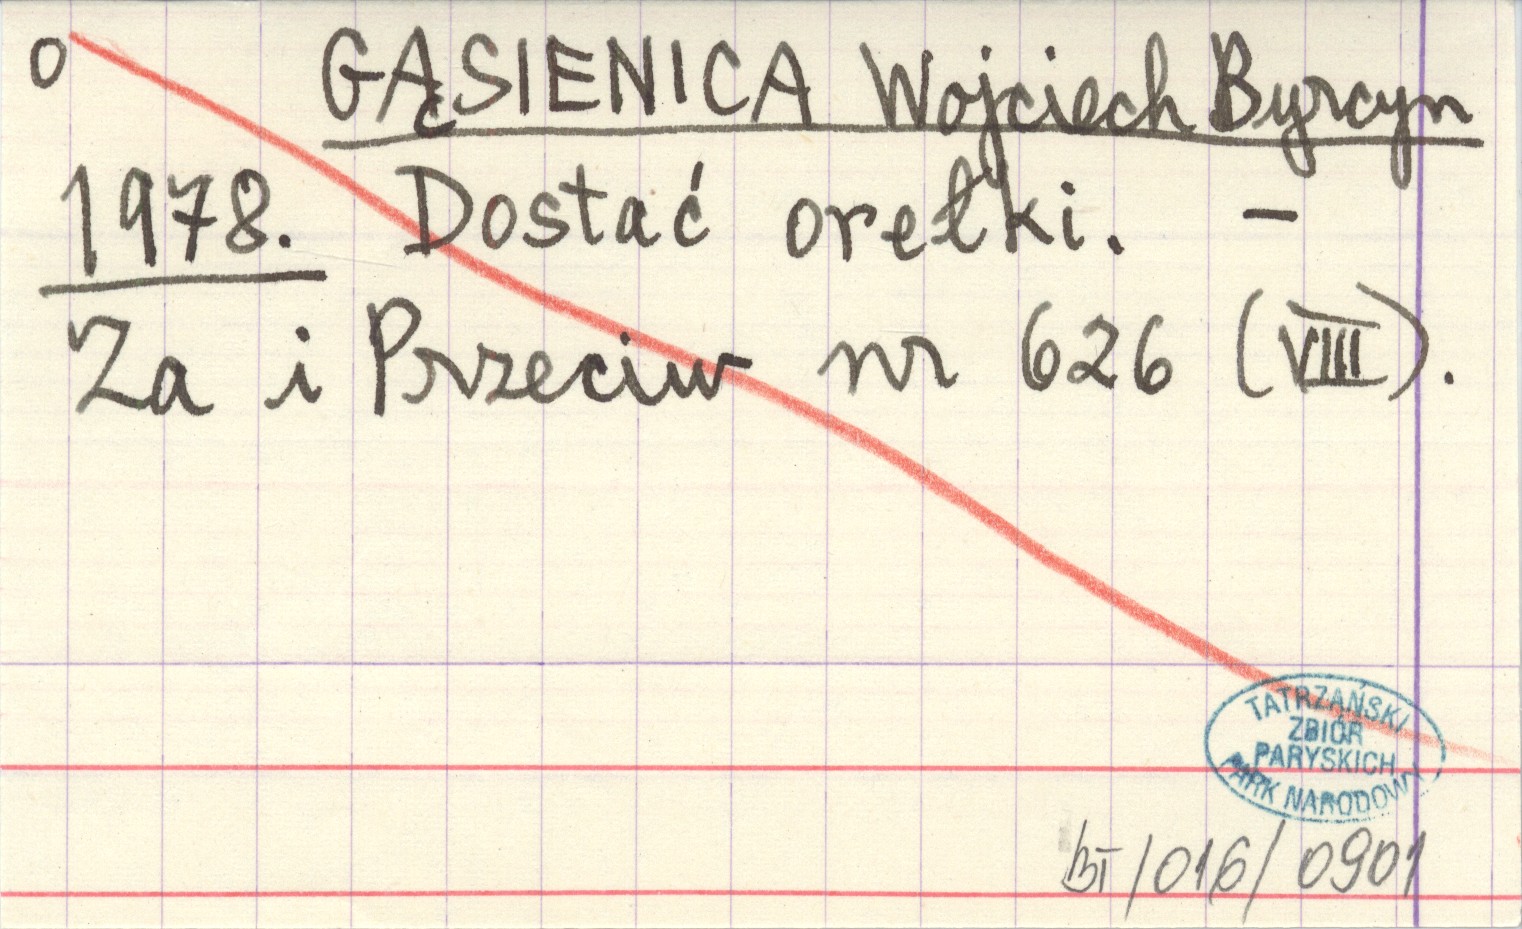 o GĄSIENICA Wojciech Byrcyn
1978. Dostać orełki. –
Za i Przeciw nr 626 (VIII).
TATRZAŃSKI
ZBIÓR
PARYSKICH
PARK NARODOWY
BT/016/0901